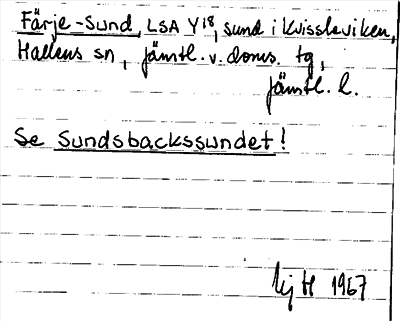 Färje-Sund, LSA Y18, sund i Kvissleviken,
Hallens sn, jämtl. v. doms. tg,
jämtl. l.
Se Sundsbackssundet!
1967